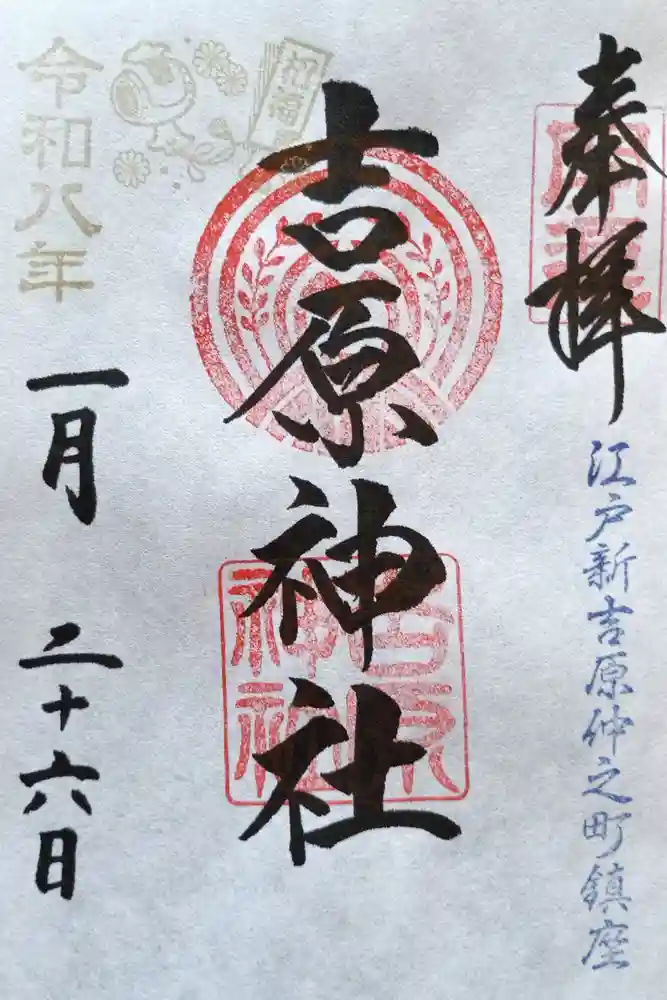 奉拝
江戸新吉原仲之町鎮座
吉原神社
吉原神社
祝福
令和八年
一月
二十六日